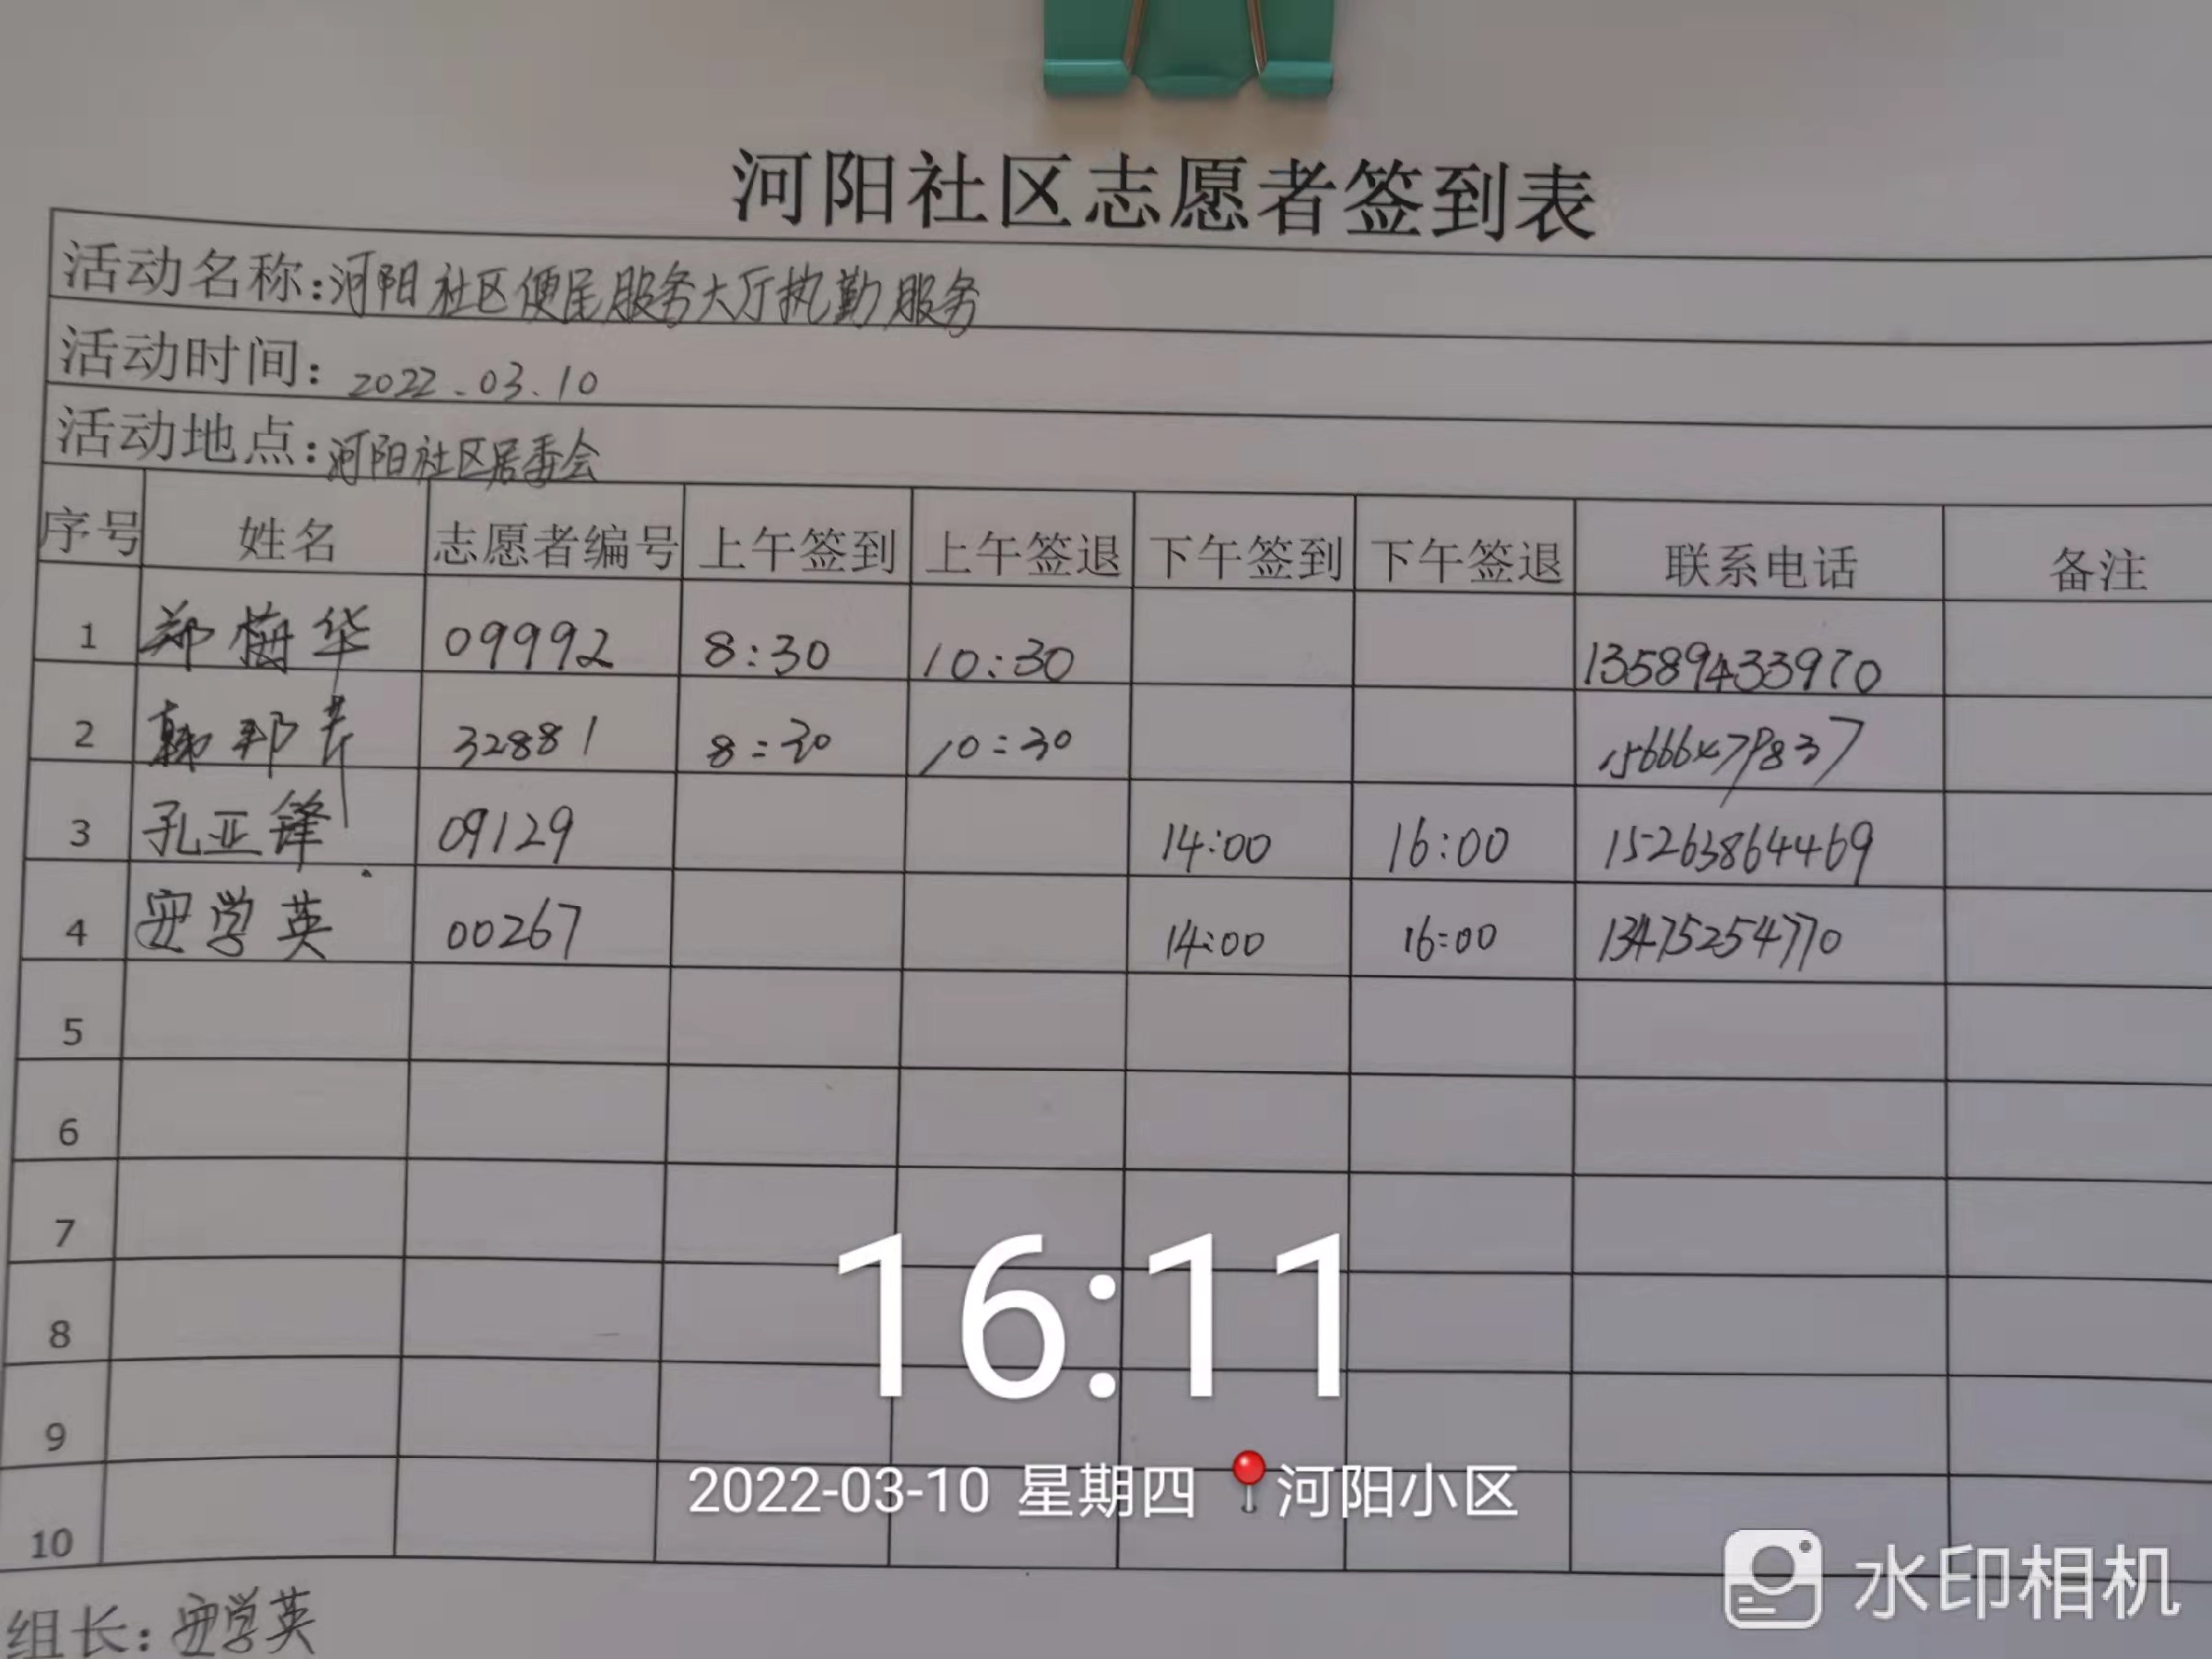 河阳社区志愿者签到表
活动名称:河阳社区便民服务大厅执勤服务
活动时间: 2022.03.10
活动地点:河阳社区居委会
序号 姓名 志愿者编号 上午签到 上午签退 下午签到 下午签退 联系电话 备注
1 郑梅华 09992 8:30 10:30 13589433970
2 韩邦 32881 8:30 10:30
3 孔亚锋 09129 14:00 16:00 15263864469
4 安学英 00267 14:00 16:00 13475254770
5
6
7
8
9
10
16:11
2022-03-10 星期四 河阳小区
水印相机
组长: 安学英